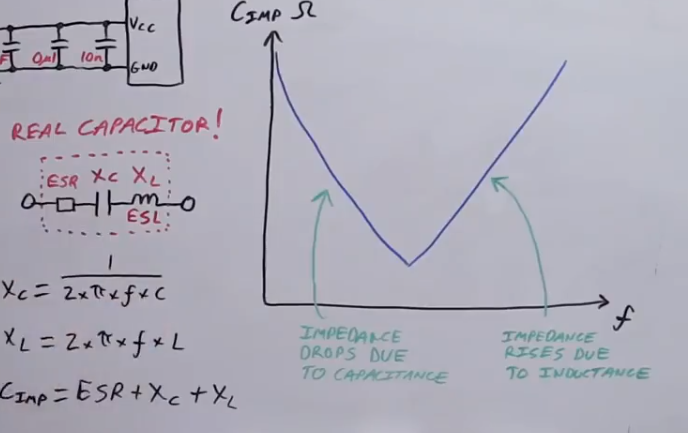 C_IMP Ω
VCC
0µ1
10n
GND
REAL CAPACITOR!
ESR XC XL
ESL
XC = 1 / 2×π×f×C
XL = 2×π×f×L
C_IMP = ESR + XC + XL
f
IMPEDANCE
DROPS DUE
TO CAPACITANCE
IMPEDANCE
RISES DUE
TO INDUCTANCE